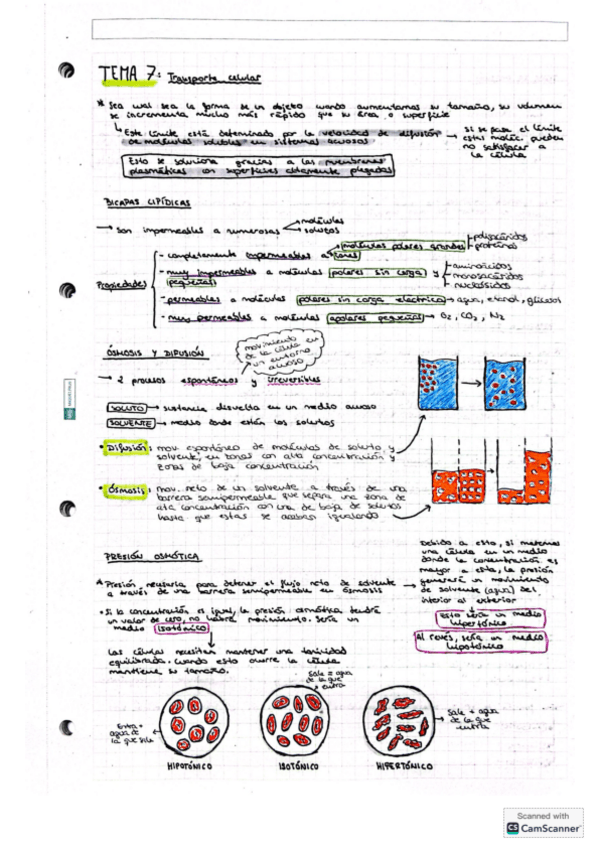 TEMA 7: Transporte celular
* Sea cual sea la forma de un objeto cuando aumentamos su tamaño, su volumen
se incrementa mucho más rápido que su área o superficie
↳ Este límite está determinado por la velocidad de difusión → si se pasa el límite
de moléculas solubles en sistemas acuosos
estas moléc. pueden
no satisfacer a
la célula
Esto se soluciona gracias a las membranas
plasmáticas con superficies altamente plegadas
BICAPAS LIPÍDICAS
→ Son impermeables a numerosas
moléculas
solutos
Propiedades
- completamente impermeables a iones
moléculas polares grandes
polisacáridos
proteínas
- muy impermeables a moléculas polares sin carga y
pequeñas
aminoácidos
monosacáridos
nucleósidos
- permeables a moléculas polares sin carga eléctrica → agua, etanol, glicerol
- muy permeables a moléculas apolares pequeñas → O2, CO2, N2
ÓSMOSIS Y DIFUSIÓN
movimiento
de la célula en
un entorno
acuoso
→ 2 procesos espontáneos y irreversibles
SOLUTO → sustancia disuelta en un medio acuoso
SOLVENTE → medio donde están los solutos
• Difusión: mov. espontáneo de moléculas de soluto y
solvente, en zonas con alta concentración y
zonas de baja concentración
• Ósmosis: mov. neto de un solvente a través de una
barrera semipermeable que separa una zona de
alta concentración con una de baja de solutos
hasta que estas se acaban igualando
PRESIÓN OSMÓTICA
* Presión necesaria para detener el flujo neto de solvente →
a través de una barrera semipermeable en ósmosis
Debido a esto, si metemos
una célula en un medio
donde la concentración es
mayor a esta, la presión
generará un movimiento
de solvente (agua) del
interior al exterior
Esto sería un medio
hipertónico
Al revés, sería un medio
hipotónico
• Si la concentración es igual, la presión osmótica tendrá
un valor de cero, no habrá movimiento. Sería un
medio isotónico
Las células necesitan mantener una tonicidad
equilibrada. Cuando esto ocurre la célula
mantiene su tamaño.
Sale = agua
de la que
entra
Entra +
agua de
la que sale
Sale + agua
de la que
entra
HIPOTÓNICO
ISOTÓNICO
HIPERTÓNICO
Scanned with
CS CamScanner